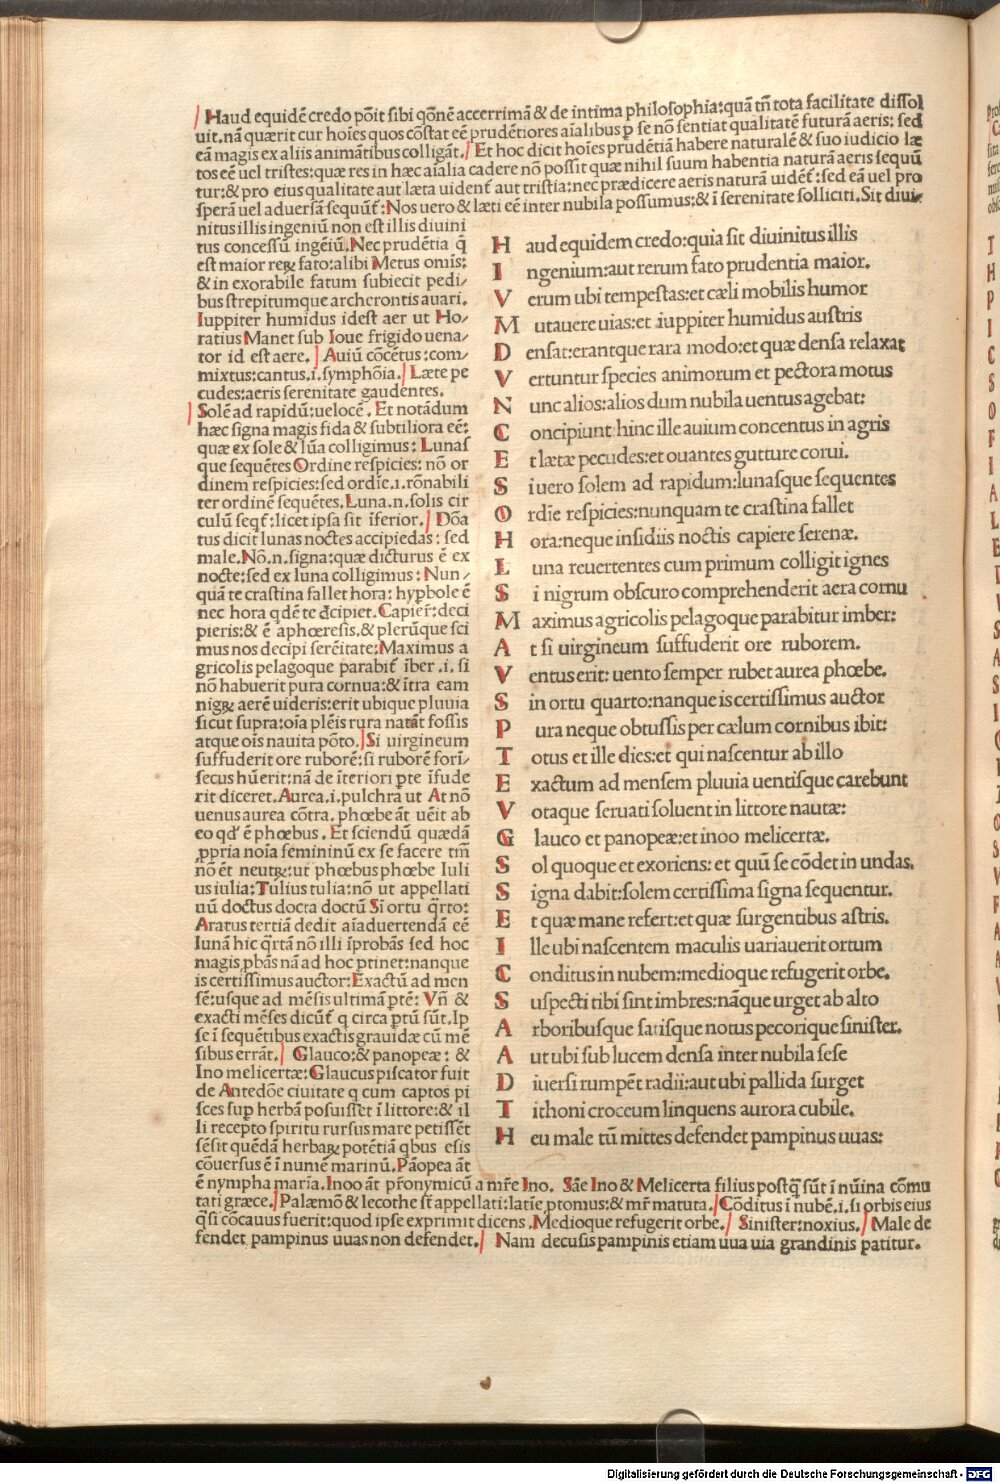 Haud equidē credo pōit sibi qōnē accerrimā & de intima philosophia:quā tñ tota facilitate dissol
uit.nā quærit cur hoīes quos cōstat eē prudētiores aīalibus p se nō sentiat qualitatē futurā aeris: sed
eā magis ex aliis animātibus colligāt. Et hoc dicit hoīes prudētiā habere naturalē & suo iudicio læ
tos eē uel tristes:quæ res in hæc aīalia cadere nō possit quæ nihil suum habentia naturā aeris sequū
tur:& pro eius qualitate aut læta uident̄ aut tristia:nec prædicere aeris naturā uidēt̄:sed eā uel pro
sperā uel aduersā sequūt̄:Nos uero & læti eē inter nubila possumus:& ī serenitate solliciti. Sit diui
nitus illis ingeniū non est illis diuini
tus concessū ingēiū. Nec prudētia q̄
est maior reꝝ fato:alibi Metus omīs:
& in exorabile fatum subiecit pedi/
bus strepitumque archerontis auari.
Iuppiter humidus idest aer ut Ho/
ratius Manet sub Ioue frigido uena/
tor id est aere. Auiū cōcētus:com/
mixtus:cantus.i.symphōia. Læte pe
cudes:aeris serenitate gaudentes.
Solē ad rapidū:uelocē. Et notādum
hæc signa magis fida & subtiliora eē:
quæ ex sole & lūa colligimus: Lunas
que sequētes Ordine respicies: nō or
dinem respicies:sed ordīe.i.rōnabili
ter ordinē sequētes. Luna.n.solis cir
culū seqt̄:licet ipsa sit īferior. Dōa
tus dicit lunas noctes accipiedas: sed
male. Nō.n.signa:quæ dicturus ē ex
nocte:sed ex luna colligimus: Nun/
quā te crastina fallet hora: hypbole ē
nec hora qdē te dcipiet. Capier̄:deci
pieris:& ē aphœresis.& plerūque sci
mus nos decipi serēitate: Maximus a
gricolis pelagoque parabit̄ īber.i.si
nō habuerit pura cornua:& ītra eam
nigꝝ aerē uideris:erit ubique pluuia
sicut supra:oīa plēis rura natāt fossis
atque oīs nauita pōto. Si uirgineum
suffuderit ore ruborē:si ruborē forī/
secus hūerit:nā de īteriori pte īfude
rit diceret. Aurea.i.pulchra ut At nō
uenus aurea cōtra. phœbe āt uēit ab
eo qd' ē phœbus. Et sciendū quædā
ꝓpria noīa femininū ex se facere tm̄
nō ēt neutꝝ:ut phœbus phœbe Iuli
us iulia: Tulius tulia:nō ut appellati
uū doctus docta doctū Si ortu q̄rto:
Aratus tertiā dedit aīaduertendā eē
lunā hic q̄rtā nō illi īprobās sed hoc
magis ꝓbās nā ad hoc ptinet:nanque
is certissimus auctor: Exactū ad men
sē:usque ad mēsis ultimā ptē: Vñ &
exacti mēses dicūt̄ q circa ptū sūt. Ip
se ī sequētibus exactis grauidæ cū mē
sibus errāt. Glauco:& panopeæ: &
Ino melicertæ: Glaucus piscator fuit
de Antedōe ciuitate q cum captos pi
sces sup herbā posuisset ī littore:& il
li recepto spiritu rursus mare petissēt
sēsit quēdā herbaꝝ potētiā qbus esis
cōuersus ē ī numē marinū. Pāopea āt
ē nympha maria. Inoo āt pr̄onymicū a mr̄e Ino. Sāe Ino & Melicerta filius postq̄ sūt ī nūina cōmu
tati græce. Palæmō & lecothe sr̄ appellati:latīe ptomus:& mr̄ matuta. Cōditus ī nubē.i.si orbis eius
q̄si cōcauus fuerit:quod ipse exprimit dicens. Medioque refugerit orbe. Sinister:noxius. Male de
fendet pampinus uuas non defendet. Nam decussis pampinis etiam uua uia grandinis patitur.
H aud equidem credo:quia sit diuinitus illis
I ngenium:aut rerum fato prudentia maior.
V erum ubi tempestas:et cæli mobilis humor
M utauere uias:et iuppiter humidus austris
D ensat:erantque rara modo:et quæ densa relaxat
V ertuntur species animorum et pectora motus
N unc alios:alios dum nubila uentus agebat:
C oncipiunt hinc ille auium concentus in agris
E t lætæ pecudes:et ouantes gutture corui.
S i uero solem ad rapidum:lunasque sequentes
O rdīe respicies:nunquam te crastina fallet
H ora:neque insidiis noctis capiere serenæ.
L una reuertentes cum primum colligit ignes
S i nigrum obscuro comprehenderit aera cornu
M aximus agricolis pelagoque parabitur imber:
A t si uirgineum suffuderit ore ruborem.
V entus erit: uento semper rubet aurea phœbe.
S in ortu quarto:nanque is certissimus auctor
P ura neque obtussis per cælum cornibus ibit:
T otus et ille dies:et qui nascentur ab illo
E xactum ad mensem pluuia uentisque carebunt
V otaque seruati soluent in littore nautæ:
G lauco et panopeæ:et inoo melicertæ.
S ol quoque et exoriens: et quū se cōdet in undas.
S igna dabit:solem certissima signa sequentur.
E t quæ mane refert:et quæ surgentibus astris.
I lle ubi nascentem maculis uariauerit ortum
C onditus in nubem:medioque refugerit orbe.
S uspecti tibi sint imbres:nāque urget ab alto
A rboribusque satisque notus pecorique sinister.
A ut ubi sub lucem densa inter nubila sese
D iuersi rumpēt radii:aut ubi pallida surget
T ithoni croceum linquens aurora cubile.
H eu male tū mittes defendet pampinus uuas:
Digitalisierung gefördert durch die Deutsche Forschungsgemeinschaft - DFG